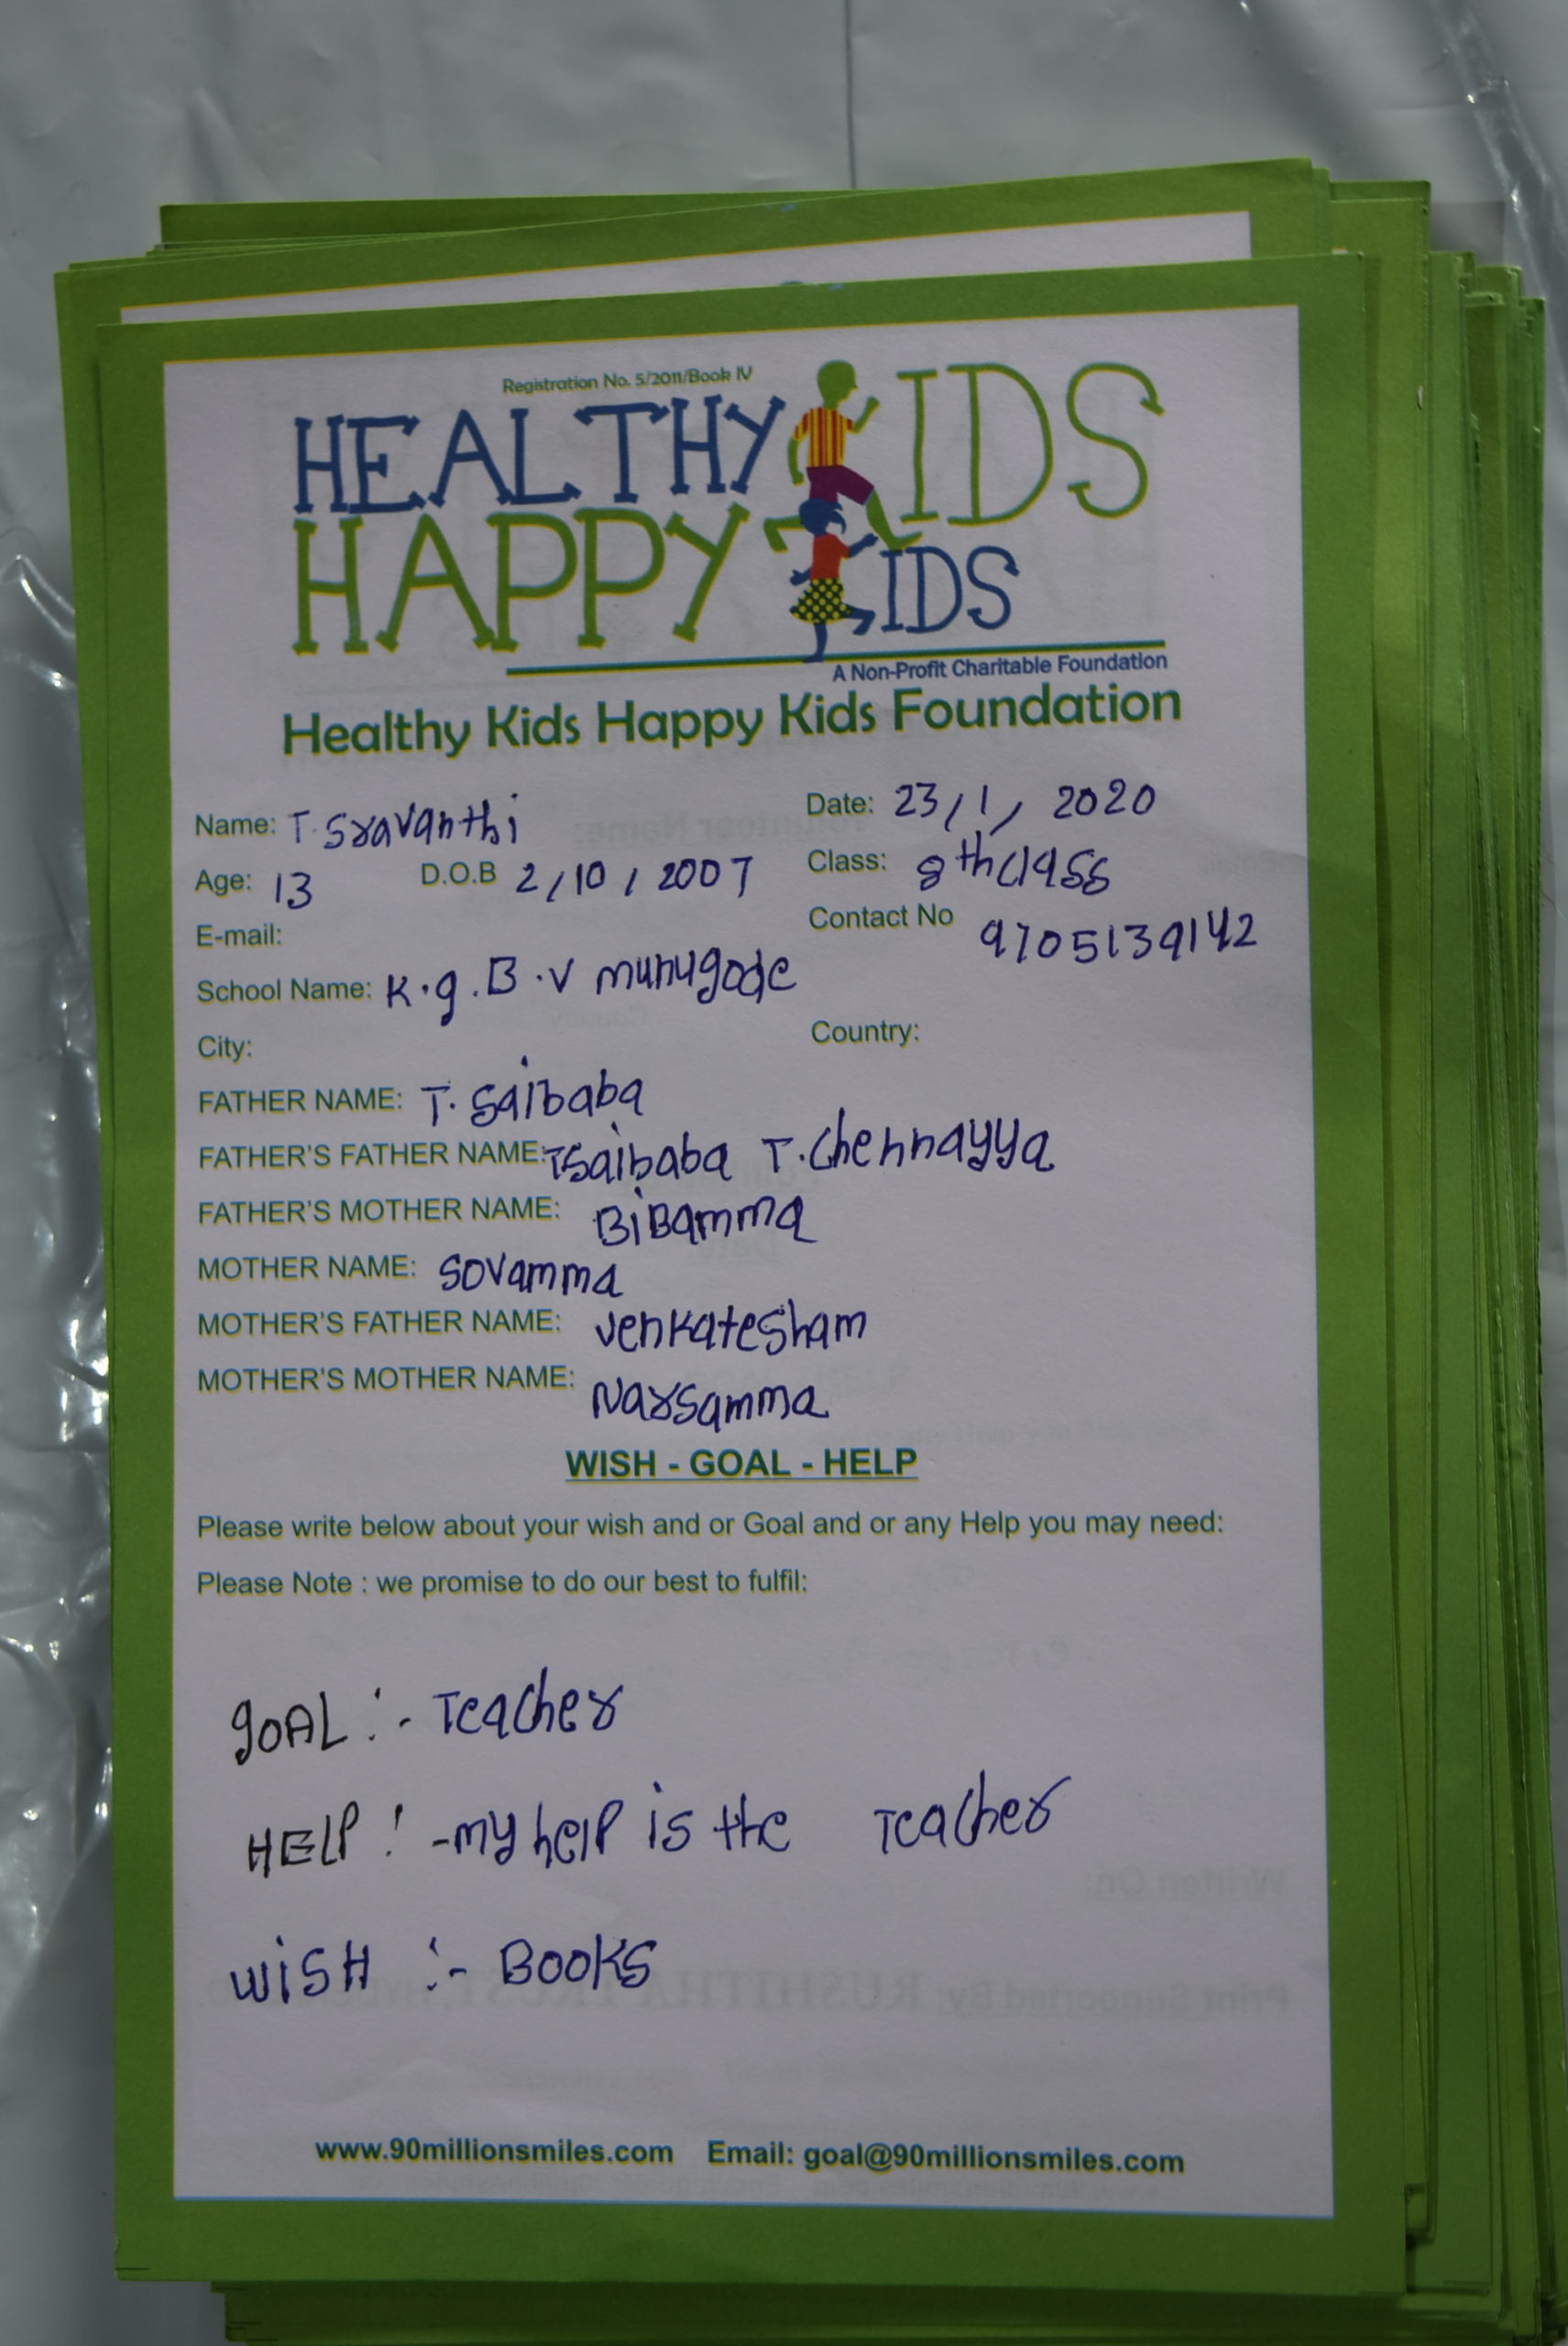 Registration No. 5/2011/Book IV
HEALTHY KIDS
HAPPY KIDS
A Non-Profit Charitable Foundation
Healthy Kids Happy Kids Foundation
Name: T. Sravanthi Date: 23/1/2020
Age: 13 D.O.B 2/10/2007 Class: 8th class
E-mail: Contact No 9705139142
School Name: K.g.B.V munugode
City: Country:
FATHER NAME: T. Saibaba
FATHER'S FATHER NAME: Tsaibaba T.Chennayya
FATHER'S MOTHER NAME: BiBamma
MOTHER NAME: Sovamma
MOTHER'S FATHER NAME: venkatesham
MOTHER'S MOTHER NAME: Narsamma
WISH - GOAL - HELP
Please write below about your wish and or Goal and or any Help you may need:
Please Note : we promise to do our best to fulfil:
gOAL :- Teacher
HELP :- my help is the Teacher
WiSH :- BOOKS
www.90millionsmiles.com Email: goal@90millionsmiles.com